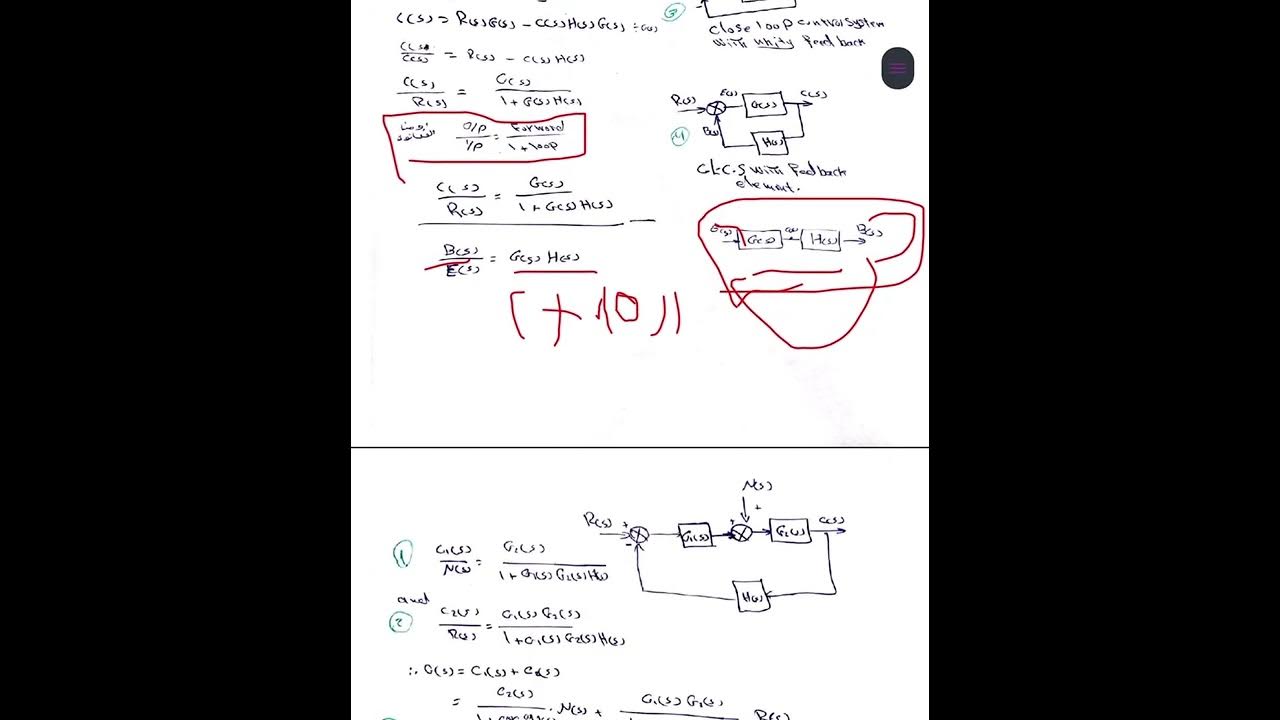 C(s) = R(s)G(s) - C(s)H(s)G(s) ÷ G(s)
C(s)/G(s) = R(s) - C(s)H(s)
C(s)/R(s) = G(s)/1+G(s)H(s)
O/P / I/P = Forword/1+loop
C(s)/R(s) = G(s)/1+G(s)H(s)
B(s)/E(s) = G(s)H(s)
3
close loop control system
with unity feed back
R(s) E(s) G(s) C(s)
B(s) H(s)
4
CL.C.S with feed back
element.
E(s) G(s) C(s) H(s) B(s)
N(s)
+
R(s) + G1(s) + G2(s) C(s)
-
H(s)
1 C1(s)/N(s) = G2(s)/1+G1(s)G2(s)H(s)
and
2 C2(s)/R(s) = G1(s)G2(s)/1+G1(s)G2(s)H(s)
∴ C(s) = C1(s) + C2(s)